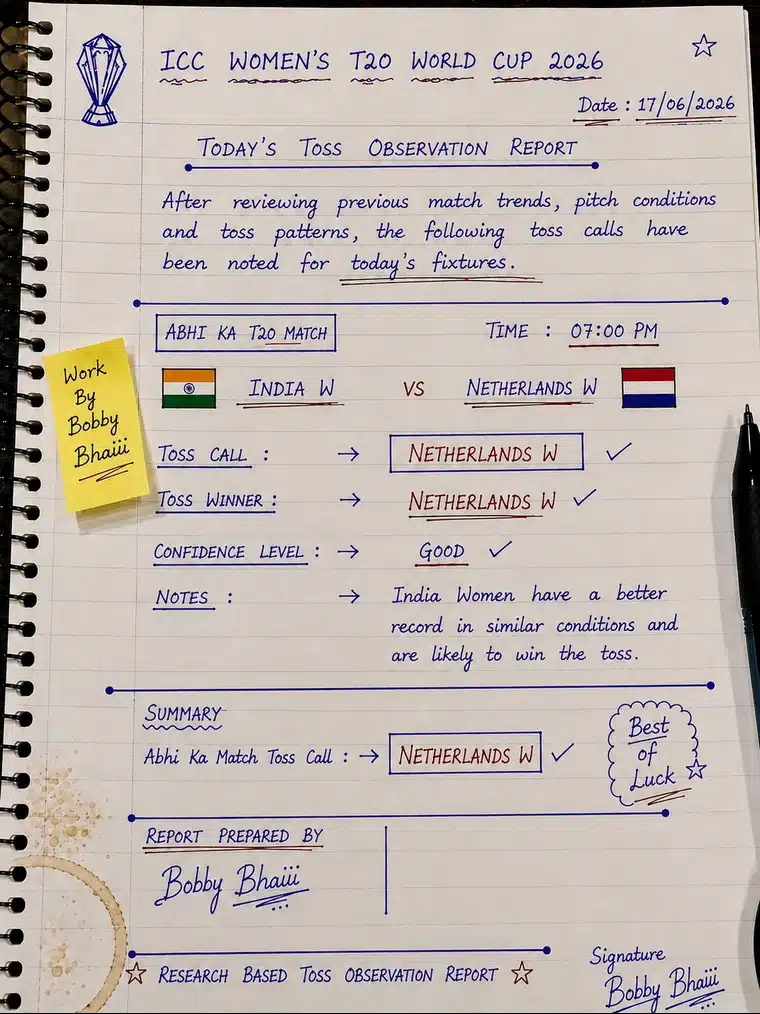 ICC WOMEN'S T20 WORLD CUP 2026
Date : 17/06/2026
TODAY'S TOSS OBSERVATION REPORT
After reviewing previous match trends, pitch conditions
and toss patterns, the following toss calls have
been noted for today's fixtures.
ABHI KA T20 MATCH TIME : 07:00 PM
INDIA W VS NETHERLANDS W
Work
By
Bobby
Bhaiii
TOSS CALL : → NETHERLANDS W ✓
TOSS WINNER : → NETHERLANDS W ✓
CONFIDENCE LEVEL : → GOOD ✓
NOTES : → India Women have a better
record in similar conditions and
are likely to win the toss.
SUMMARY
Abhi Ka Match Toss Call : → NETHERLANDS W ✓
Best
of
Luck
REPORT PREPARED BY
Bobby Bhaiii
☆ RESEARCH BASED TOSS OBSERVATION REPORT ☆
Signature
Bobby Bhaiii